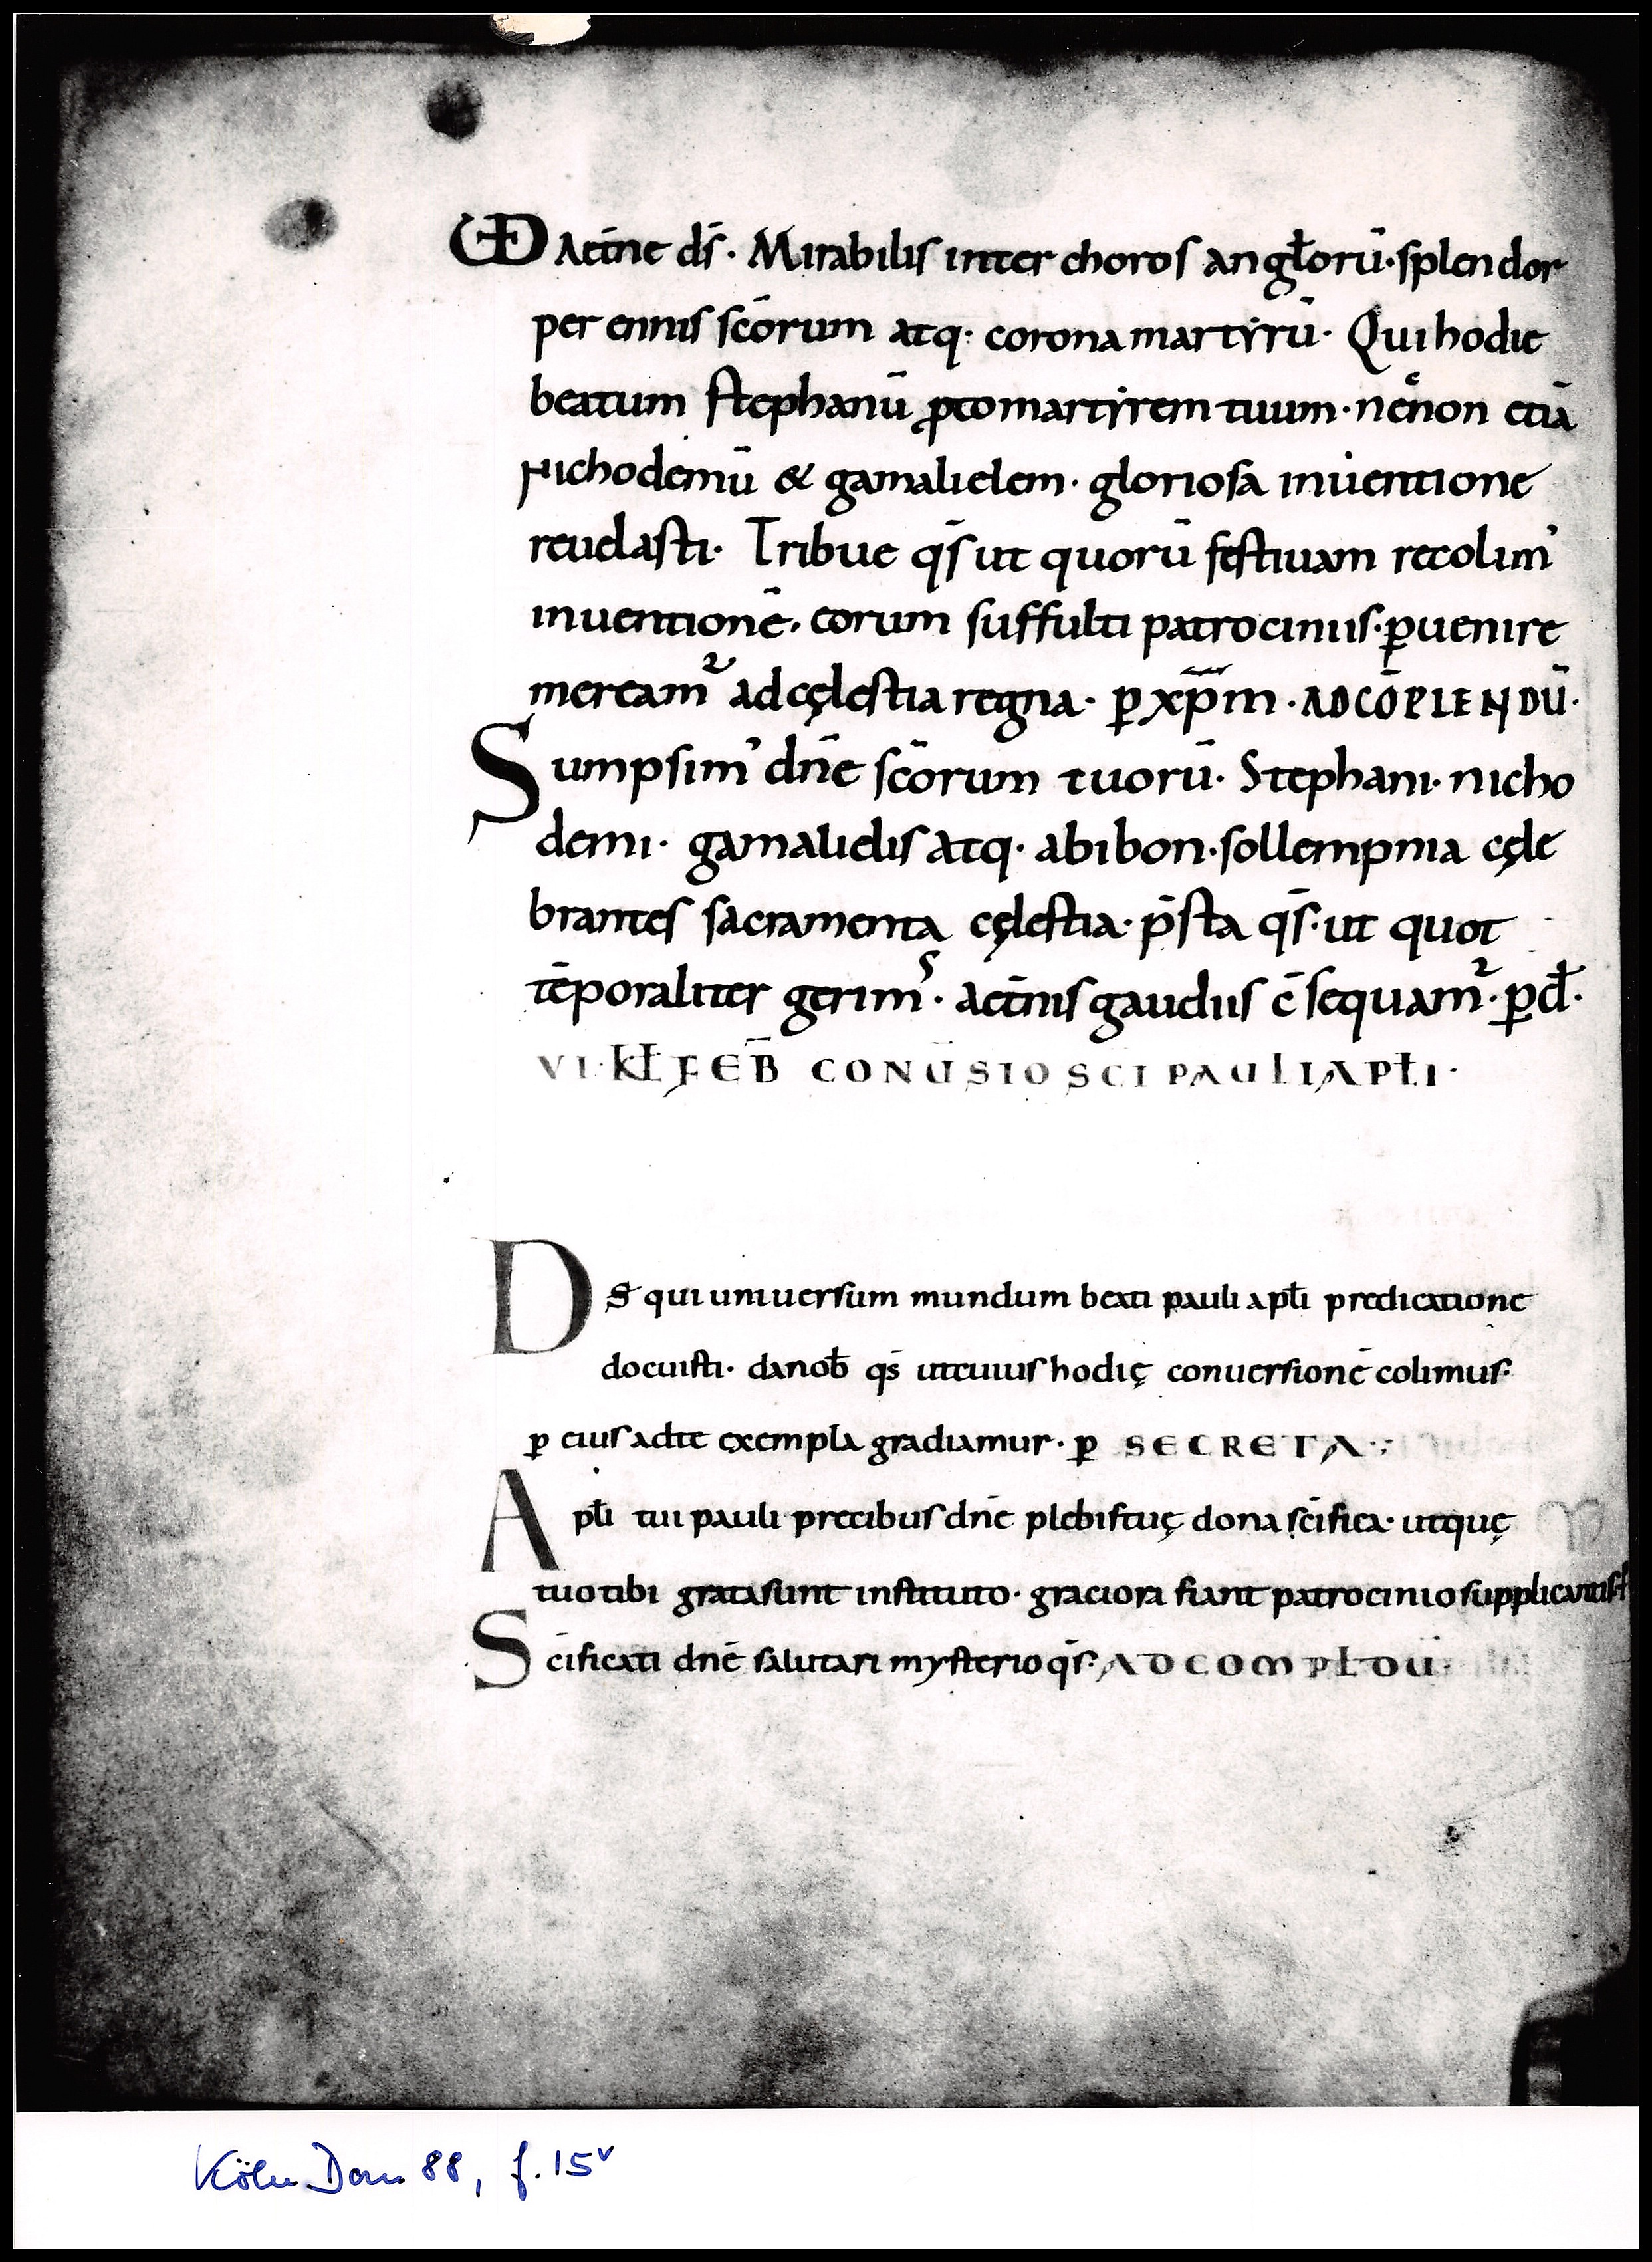 VD Aet̄ne d̄s · Mirabilis inter choros angłorū · splendor
perennis sc̄orum atq· corona martyrū · Qui hodie
beatum stephanū ꝓtomartyrem tuum · nec̄non etiā
Nichodemū & gamalielem · gloriosa inuentione
reuelasti · Tribue q̄s ut quorū festiuam recolim’
inuentionē · eorum suffulti patrociniis · ꝑuenire
meream² ad cęlestia regna · ꝑ xp̄m · ADCŌPLENDŪ ·
Sumpsim’ dn̄e sc̄orum tuorū · Stephani · nicho
demi · gamalielis atq· abibon · sollempnia cęle
brantes sacramenta cęlestia · p̄sta q̄s · ut quot
tēporaliter gerimˢ · aet̄nis gaudiis c̄sequam² · ꝑ đ ·
VI · KŁ FEB̄ CONŪSIO SCI PAULI APŁI ·
Ds̄ qui uniuersum mundum beati pauli apłi predicatione
docuisti · da nob̄ qs̄ ut cuius hodię conuersionē colimus ·
ꝑ eius ad te exempla gradiamur · ꝑ SECRETA ·;
Apłi tui pauli precibus dn̄e plebis tuę dona sc̄ifica · ut quę
tuo tibi grata sunt instituto · graciora fiant patrocinio supplicantis
Sc̄ificati dn̄e salutari mysterio q̄s · AD COMPŁDŪ ·
Köln Dom 88, f. 15ᵛ